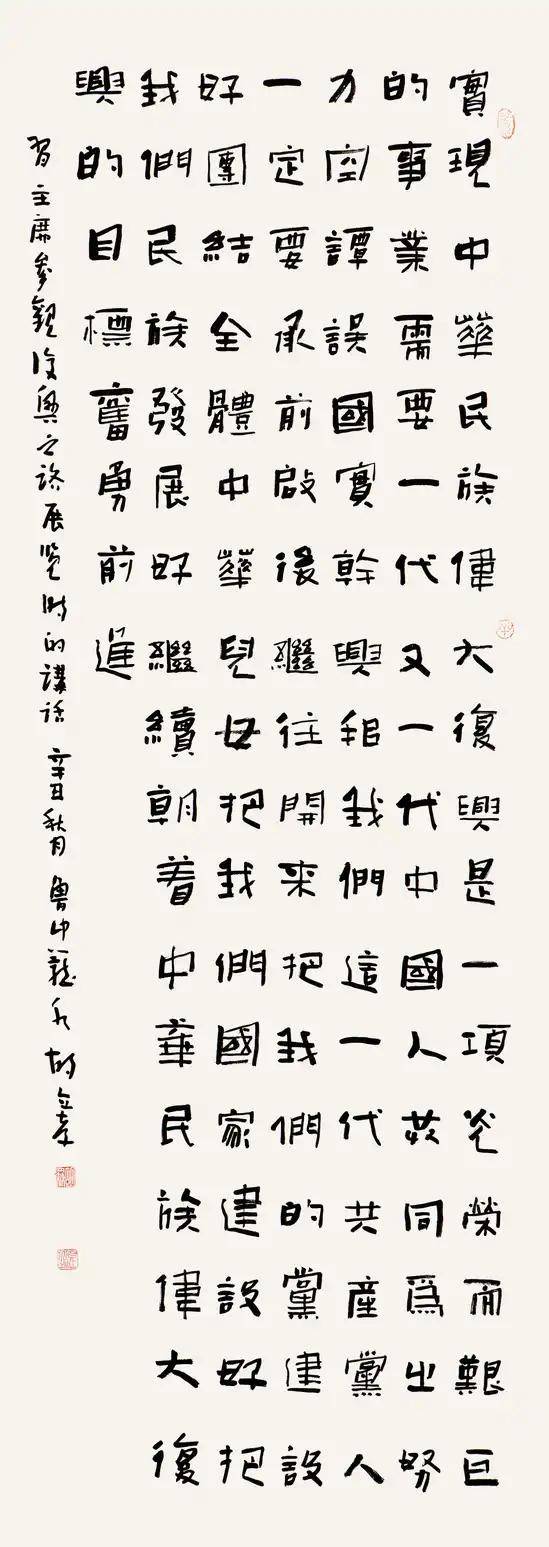 實現中華民族偉大復興是一項光榮而艱巨
的事業需要一代又一代中國人共同爲之努
力空譚誤國實幹興邦我們這一代共產黨人
一定要承前啟後繼往開來把我們的黨建設
好團結全體中華兒女把我們國家建設好把
我們民族發展好繼續朝着中華民族偉大復
興的目標奮勇前進
習主席參觀復興之路展览時的講話 辛丑秋月 魯中